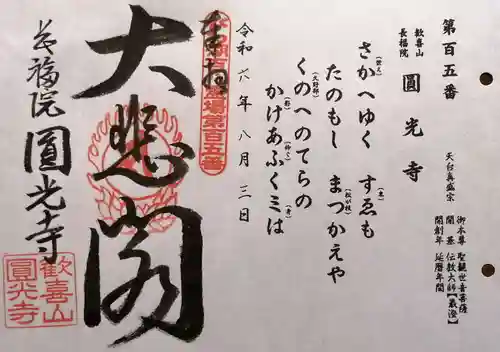 第百五番
天台真盛宗
御本尊 聖観世音菩薩
開基 伝教大師【最澄】
開創年 延暦年間
歓喜山
長福院
圓光寺
さかへゆく すゑも
(栄え)
(末)
たのもし まつかえや
(松が枝)
くのへのてらの
(久野部)
かけあふくミは
(影)
(仰ぐ)
(身)
令和六年八月三日
奉拝
霊場第百五番
大悲閣
長福院 圓光寺
歓喜山
圓光寺